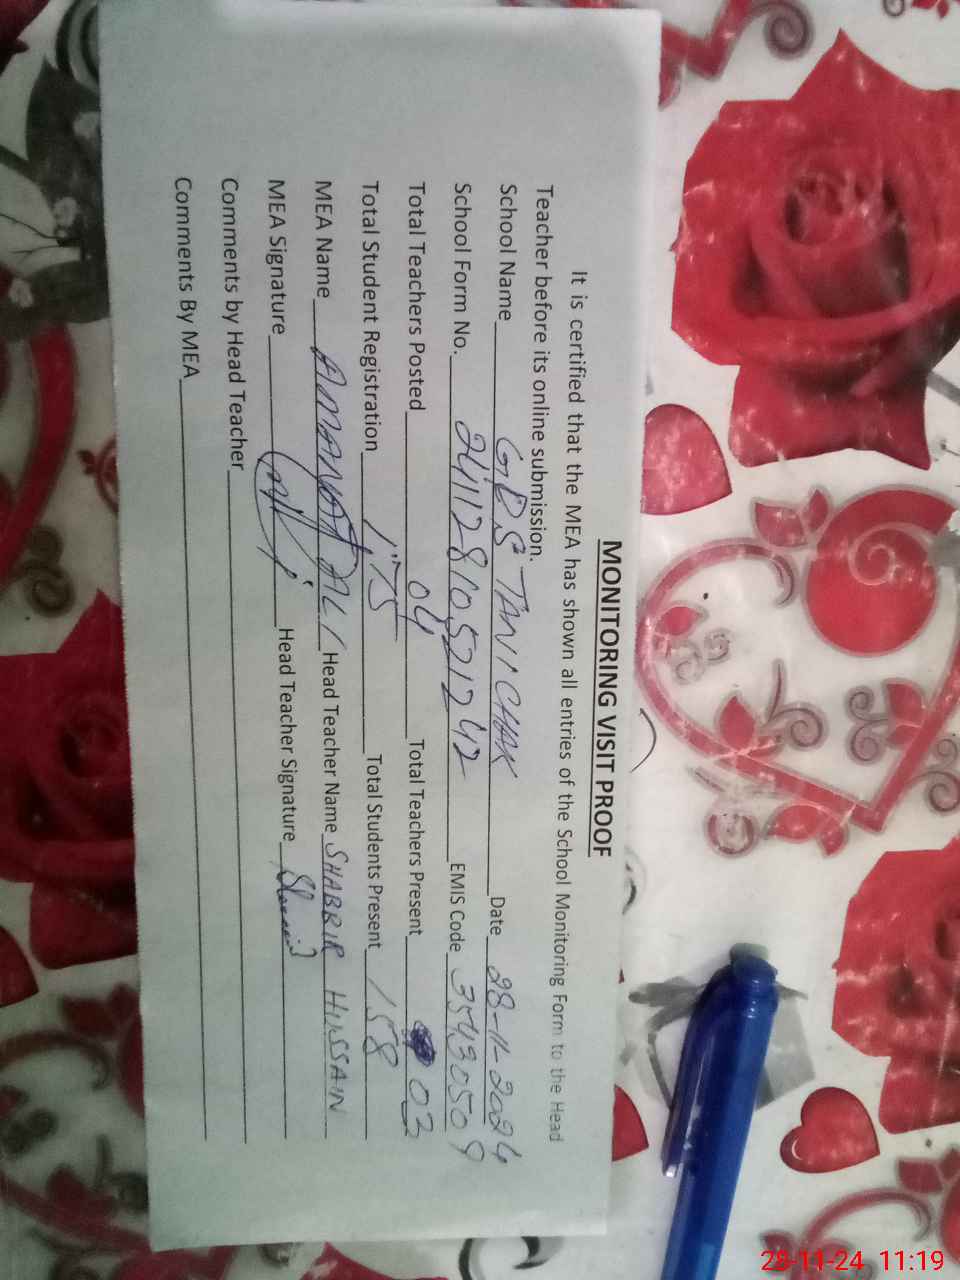 MONITORING VISIT PROOF
It is certified that the MEA has shown all entries of the School Monitoring Form to the Head
Teacher before its online submission.
School Name GPS TANI CHAK Date 28-11-2024
School Form No. 24112810521242 EMIS Code 35430509
Total Teachers Posted 04 Total Teachers Present 03
Total Student Registration 175 Total Students Present 158
MEA Name AMANAT ALI Head Teacher Name SHABBIR HUSSAIN
MEA Signature Head Teacher Signature
Comments by Head Teacher
Comments By MEA
28-11-24 11:19